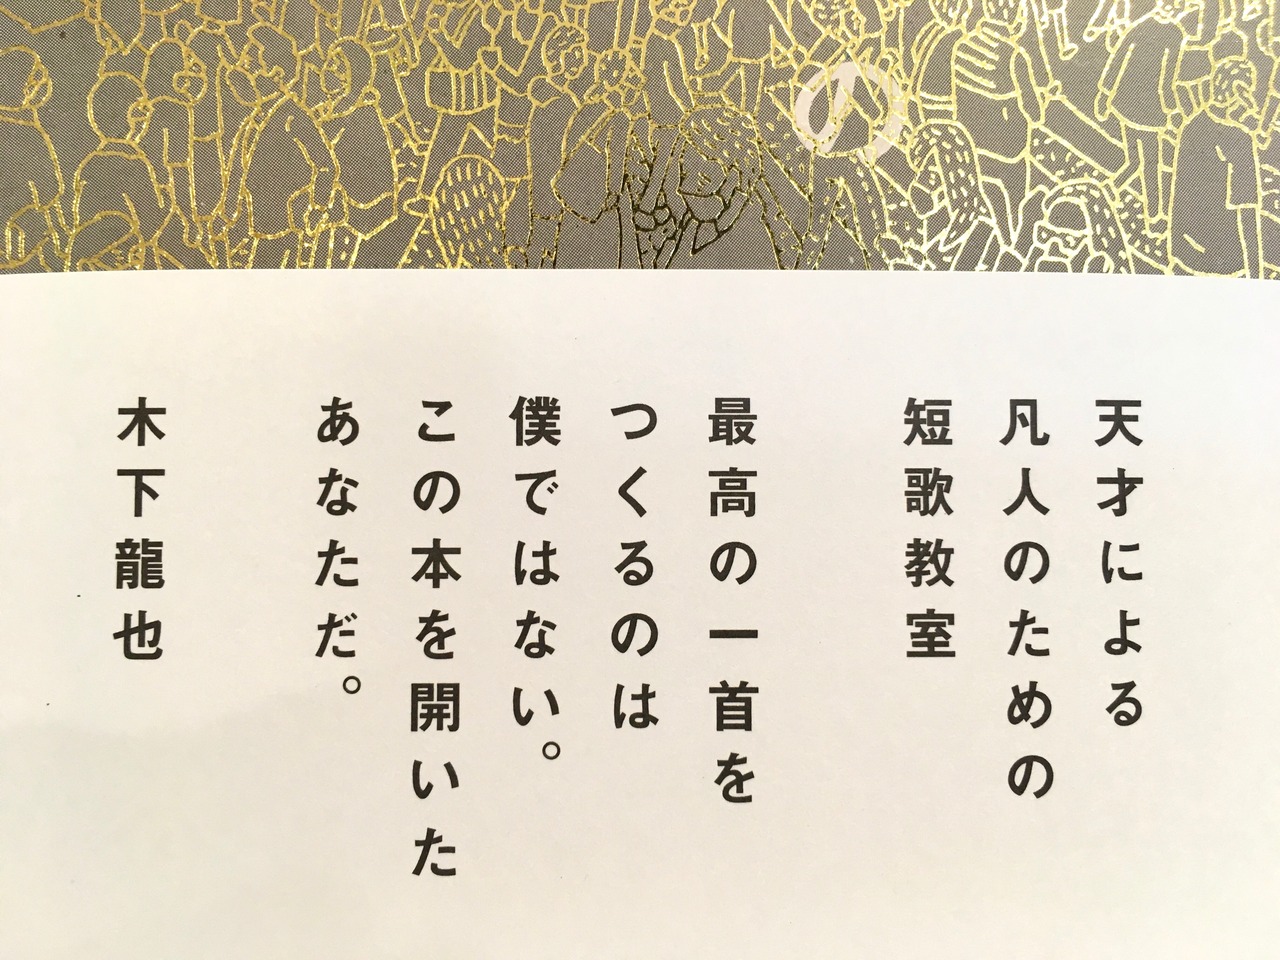 天才による
凡人のための
短歌教室
最高の一首を
つくるのは
僕ではない。
この本を開いた
あなただ。
木下龍也